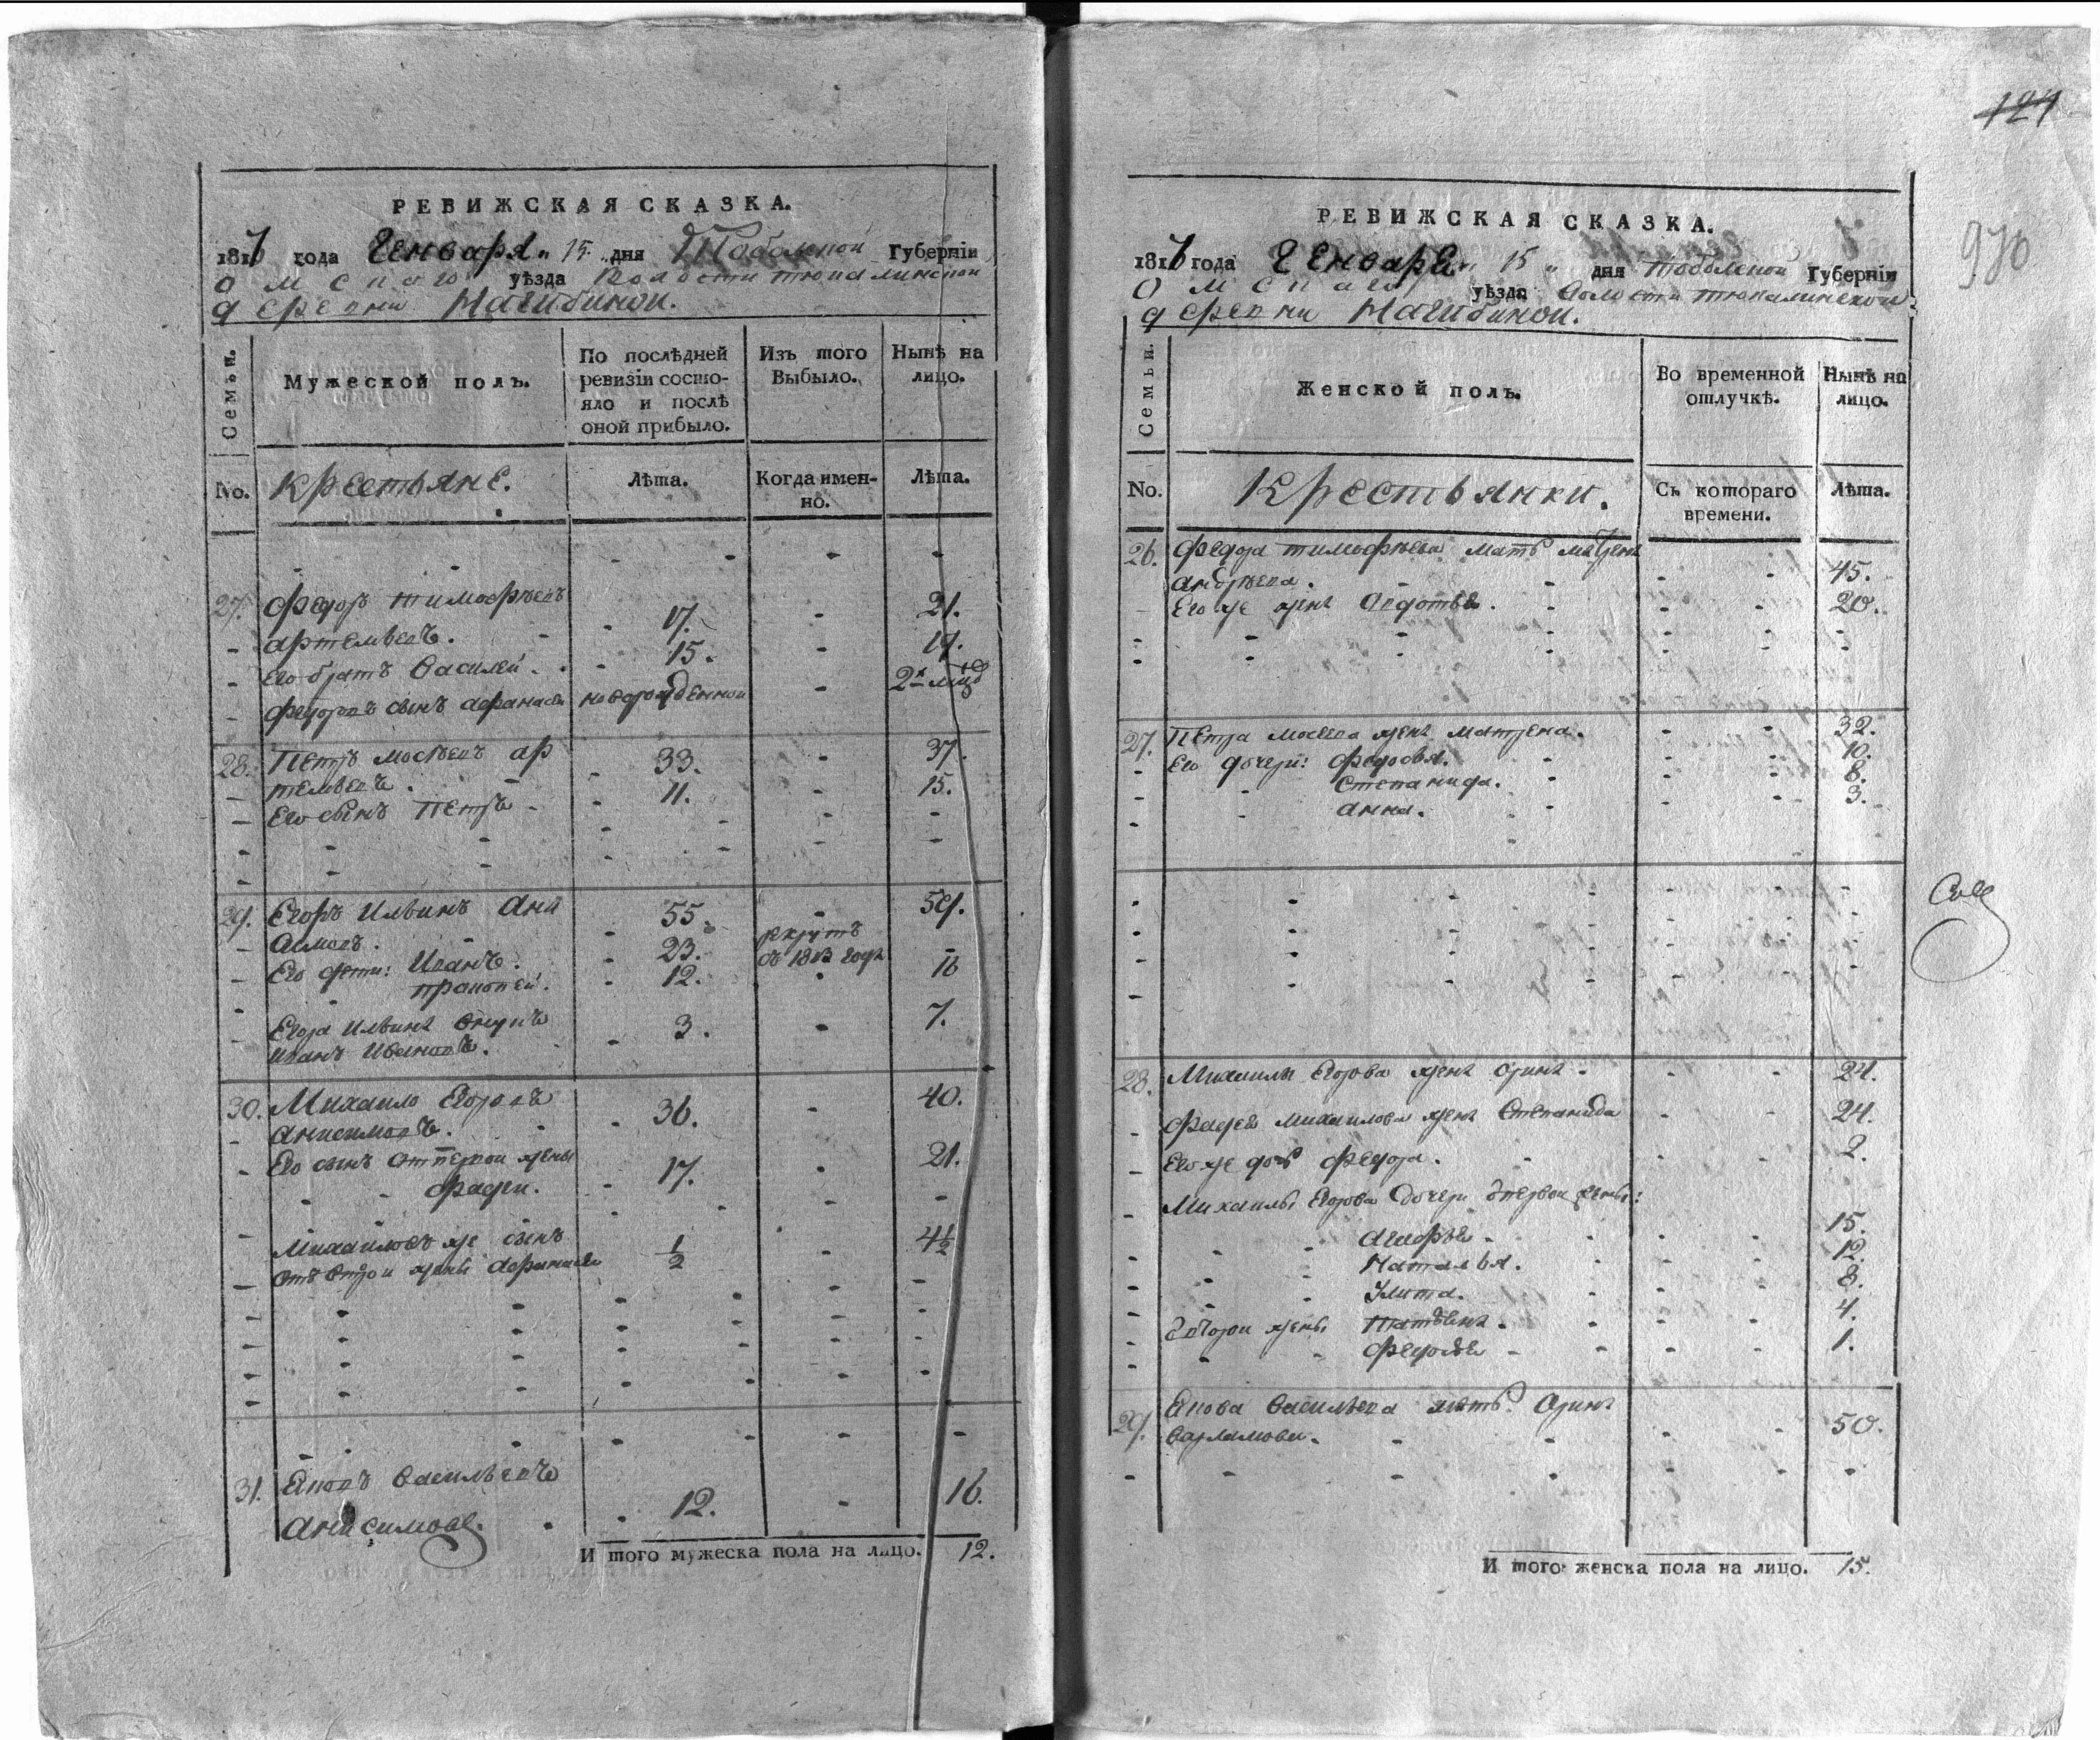 РЕВИЖСКАЯ СКАЗКА.
1816 года Генваря 15 дня Тобольской Губерніи
Омскаго уѣзда Волости тюкалинской
деревни Нагибиной.
Семьи.
Мужеской полъ.
По послѣдней ревизіи состояло и послѣ оной прибыло.
Изъ того Выбыло.
Нынѣ на лицо.
No.
Крестьяне.
Лѣта.
Когда именно.
Лѣта.
27. Федоръ тимофѣевъ
артемьевъ. 17. 21.
Его братъ Василей 15. 19.
Федоровъ сынъ афанасей новорожденной
28. Петръ мосѣевъ ар
темьевъ. 33. 37.
Его сынъ Петръ 11. 15.
29. Егоръ Ильинъ Ани
симовъ. 55. 59.
Его дети: Иванъ. 23. рекрутъ
въ 1813 годе
прокопей. 12. 16
Егора Ильина внукъ
Иванъ Ивановъ. 3. 7.
30. Михайло Егоровъ
анисимовъ. 36. 40.
Его сынъ от первой жены
фадей. 17. 21.
Михайловъ же сынъ
отъ второй жены Афанасей 1/2 4 1/2
31. Аковъ Васильевъ
анисимовъ. 12. 16.
И того мужеска пола на лицо. 12.
124
970
РЕВИЖСКАЯ СКАЗКА.
1816 года Генваря 15 дня тобольской Губерніи
Омскаго уѣзда Волости тюкалинской
деревни Нагибиной.
Семьи.
Женской полъ.
Во временной отлучкѣ.
Нынѣ на лицо.
No.
Крестьянки.
Съ котораго времени.
Лѣта.
26. Федора тимофѣева мать
андрѣева. 45.
Его же жена Авдотья. 20.
27. Петра мосеева жена матрена. 32.
Его дочери: Федосья. 10.
Степанида. 8.
анна. 3.
28. Михаилы Егорова жена орина 24.
Фадея михаилова жена Степанида 24.
Его же дочь федора. 2.
Михаилы Егорова дочери
Агафья 15.
Наталья. 12.
Улита. 8.
второй жены 4.
Федосья 1.
29. Акова Васильева мать Орина
Варламова 50.
И того женска пола на лицо. 15.